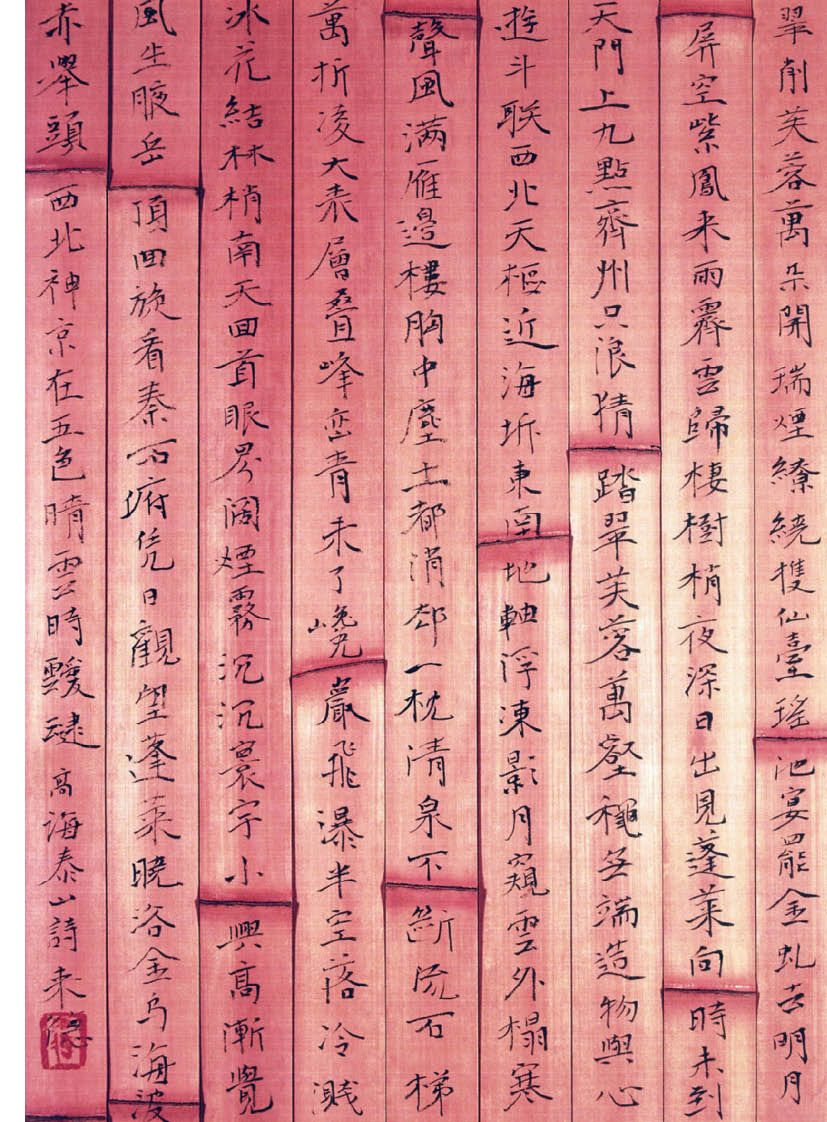 翠削芙蓉萬朵開瑞煙繚繞擭仙臺瑤池宴罷金虬去明月
屏空紫鳳來雨霽雲歸棲樹梢夜深日出見蓬萊向時未到
天門上九點齊州只浪猜踏翠芙蓉萬壑穐無端造物與心
遊斗聯西北天樞近海坼東南地軸浮凍影月窺雲外榻寒
聲風滿雁邊樓胸中塵土都消却一枕清泉不斷流石梯
萬折凌大袁層疊峰巒青未了巉巖飛瀑半空落冷濺
冰花結林梢南天回首眼界闊煙霧沉沉寰宇小興高漸覺
風生腋岳頂回旋看秦石府凭日觀望蓬萊曉浴金烏海波
赤舉頭西北神京在五色晴雲時靉靆高海泰山詩